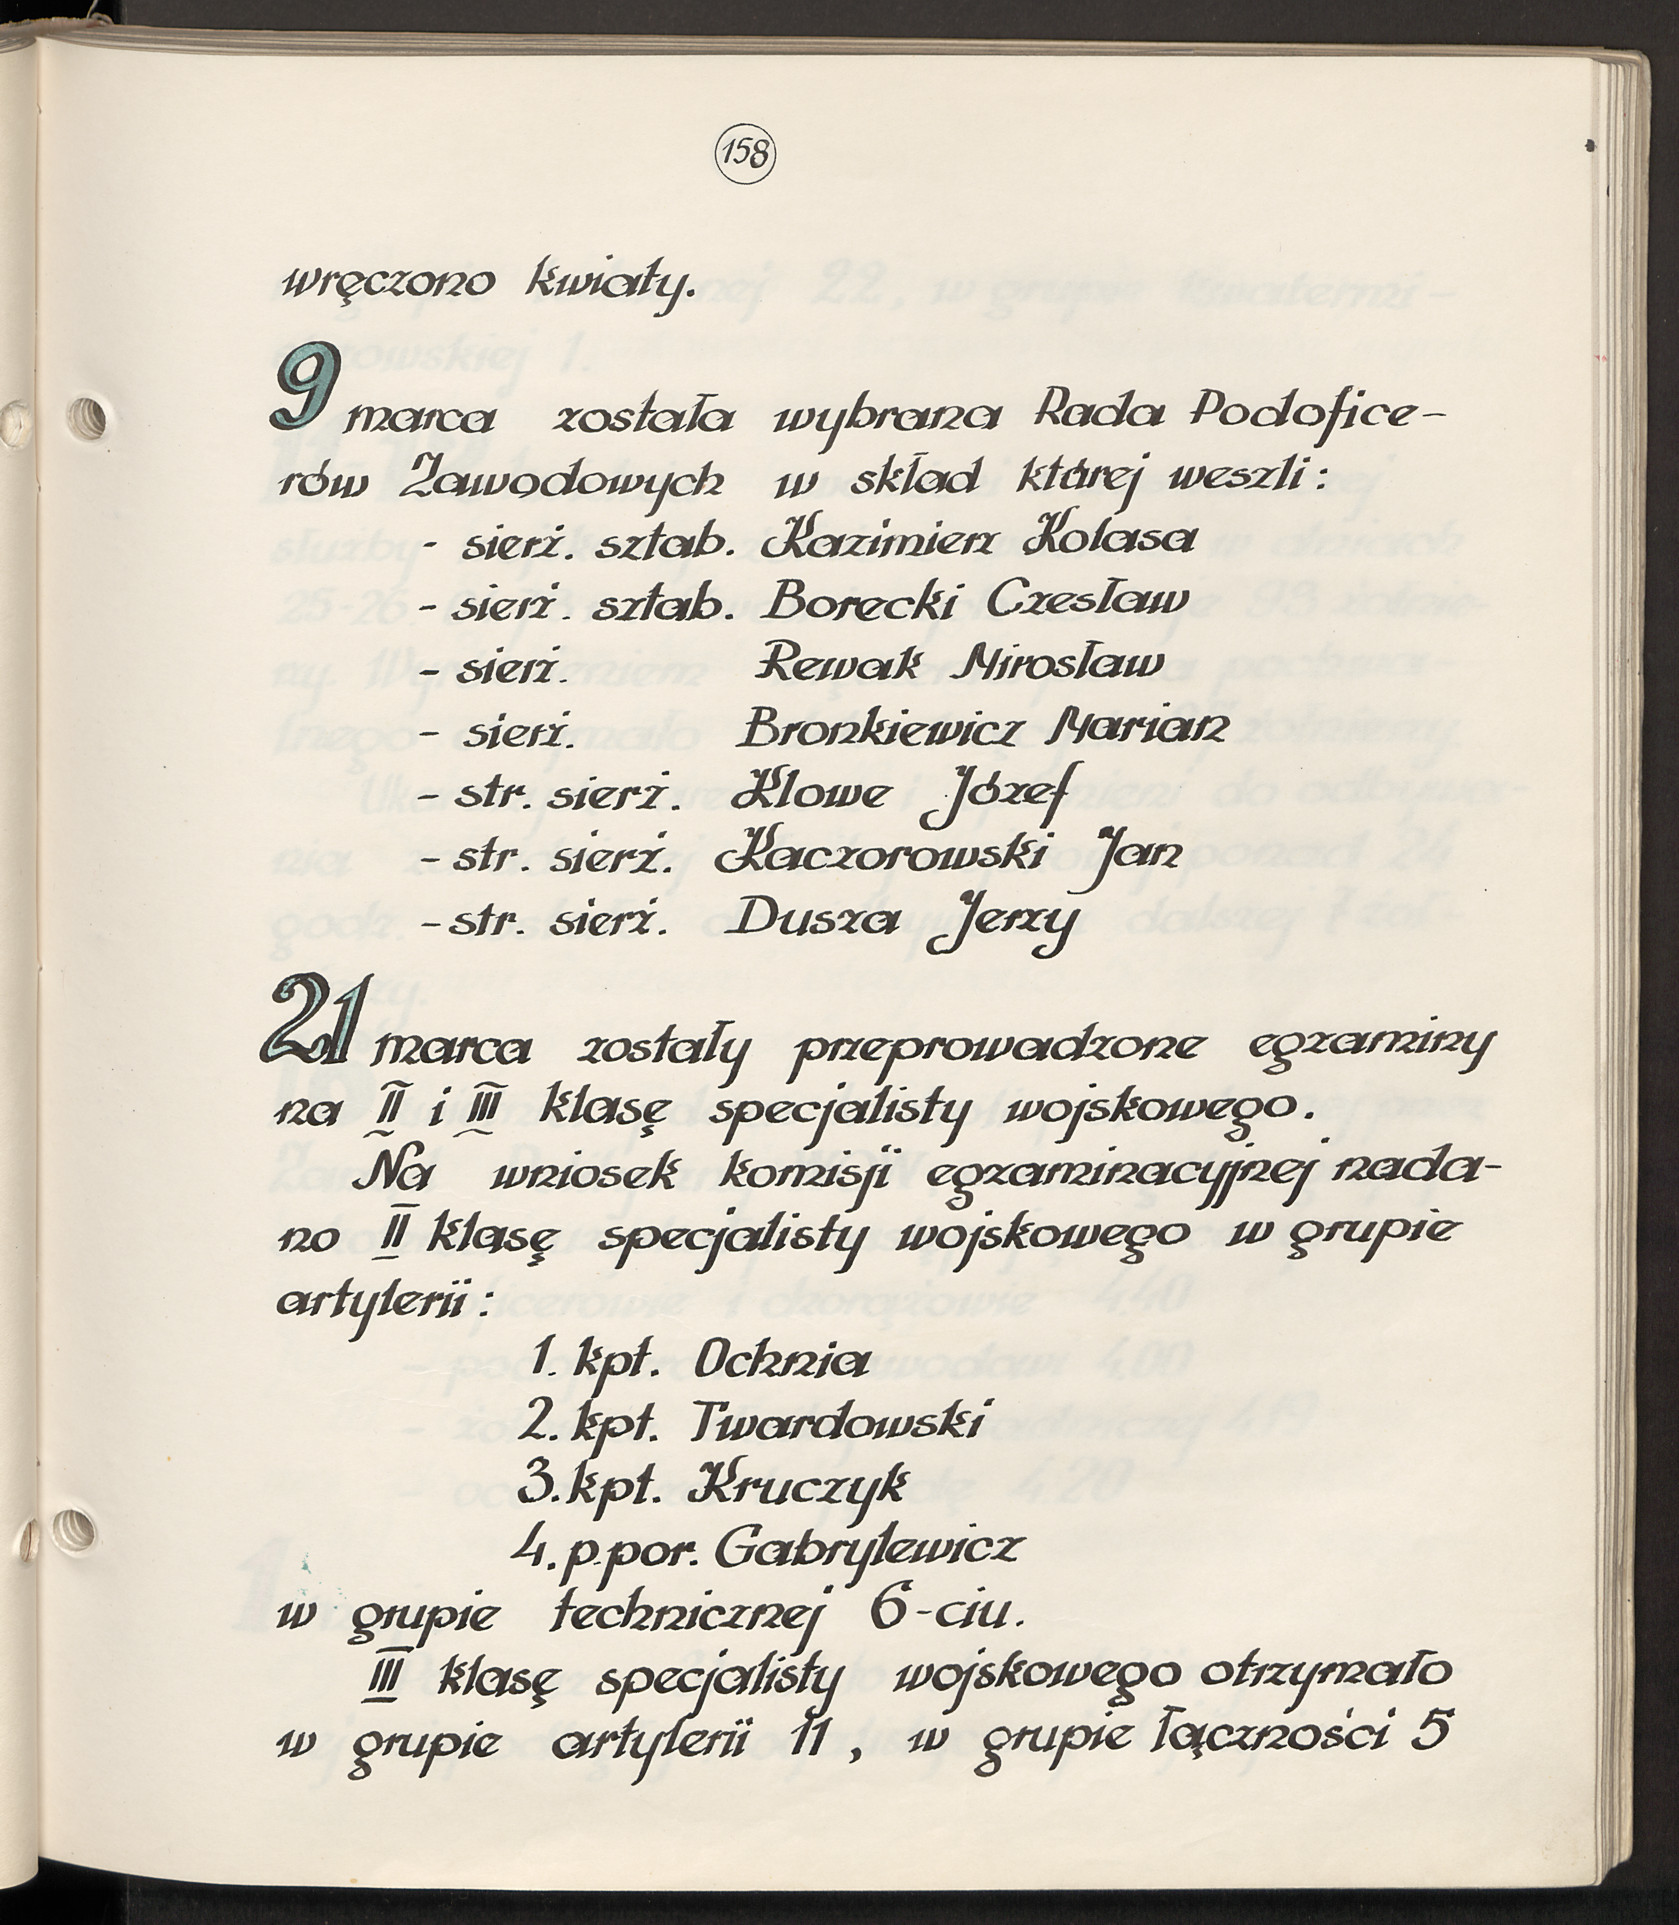 158
wręczono kwiaty.
9 marca została wybrana Rada Podofice-
rów Zawodowych w skład której weszli:
- sierż. sztab. Kazimierz Kolasa
- sierż. sztab. Borecki Czesław
- sierż. Rewak Mirosław
- sierż. Bronkiewicz Marian
- str. sierż. Klowe Józef
- str. sierż. Kaczorowski Jan
- str. sierż. Dusza Jerzy
21 marca zostały przeprowadzone egzaminy
na II i III klasę specjalisty wojskowego.
Na wniosek komisji egzaminacyjnej nada-
no II klasę specjalisty wojskowego w grupie
artylerii:
1. kpt. Ochnia
2. kpt. Twardowski
3. kpt. Kruczyk
4. p.por. Gabrylewicz
w grupie technicznej 6-ciu.
III klasę specjalisty wojskowego otrzymało
w grupie artylerii 11, w grupie łączności 5